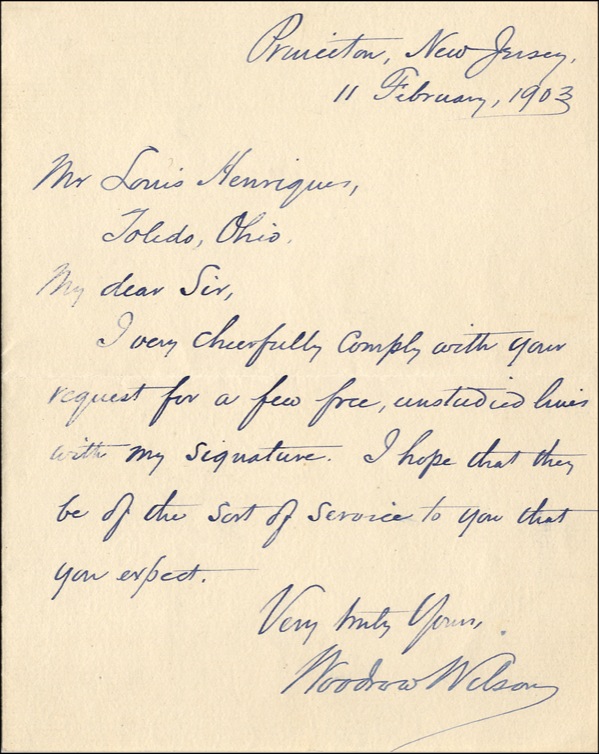 Princeton, New Jersey,
11 February, 1903
Mr Louis Henriques,
Toledo, Ohio.
My dear Sir,
I very cheerfully comply with your
request for a few free, unstudied lines
with my signature. I hope that they
be of the sort of service to you that
you expect.
Very truly Yours,
Woodrow Wilson